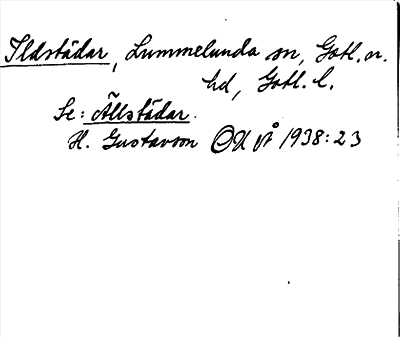 Ildstädar, Lummelunda sn, Gotl. n.
hd, Gotl. l.
Se: Ällstädar.
H. Gustavson OUÅ 1938:23